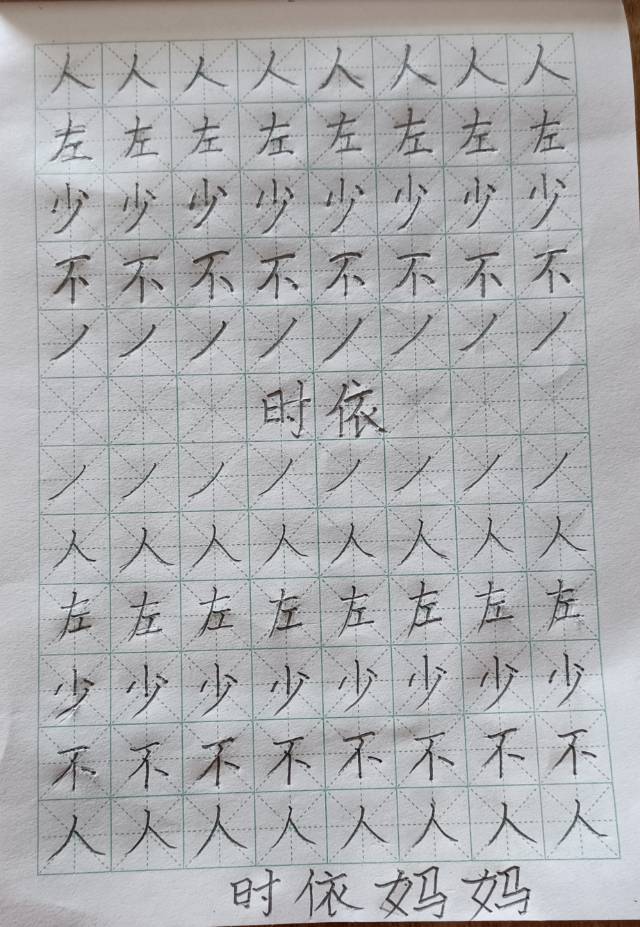 人人人人人人人人
左左左左左左左左
少少少少少少少少
不不不不不不不不
丿丿丿丿丿丿丿丿
时依
丿丿丿丿丿丿丿丿
人人人人人人人人
左左左左左左左左
少少少少少少少少
不不不不不不不不
人人人人人人人人
时依妈妈